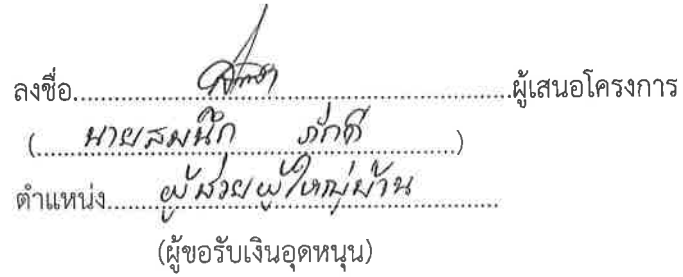 ลงชื่อ........................ผู้เสนอโครงการ
(นายสมนึก ภักดี)
ตำแหน่ง ผู้ช่วยผู้ใหญ่บ้าน
(ผู้ขอรับเงินอุดหนุน)